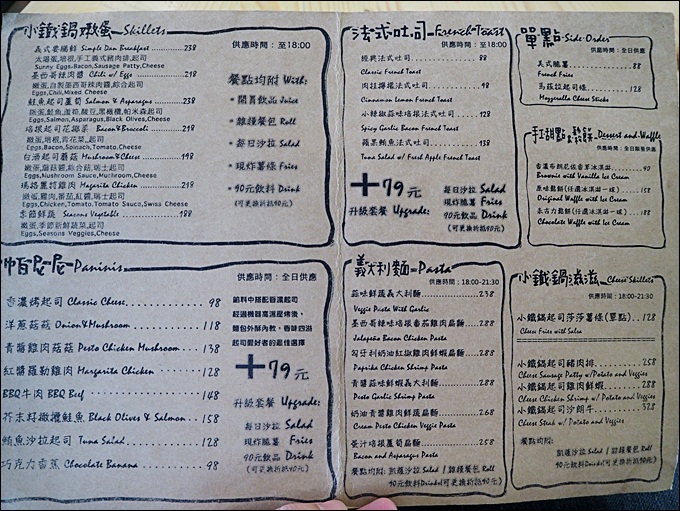 小鐵鍋燉蛋 Skillets
供應時間：至18:00
義式套腸鮮 Simple Dan Breakfast 238
太陽蛋,培根,手工義式豬肉排,起司
Sunny Eggs,Bacon,Sausage Patty,Cheese
墨西哥辣肉醬 Chili w/ Eggs 218
嫩蛋,自製墨西哥辣肉醬,綜合起司
Eggs,Chili,Mixed Cheese
鮭魚起司蘆筍 Salmon & Asparagus 238
Eggs,Salmon,Asparagus,Black Olives,Cheese
培根起司花椰菜 Bacon & Broccoli 218
嫩蛋,培根,青花菜,起司
Eggs,Bacon,Spinach,Tomato,Cheese
白酒起司蘑菇 Mushroom & Cheese 198
嫩蛋,蘑菇醬,綜合菇,瑞士起司
Eggs,Mushroom Sauce,Mushroom,Cheese
瑪格麗特雞肉 Magarita Chicken 218
嫩蛋,雞肉,番茄,紅醬,瑞士起司
Eggs,Chicken,Tomato,Tomato Sauce,Swiss Cheese
季節鮮蔬 Seasons Vegetable 188
嫩蛋,季節新鮮蔬菜,起司
Eggs,Seasons Veggies,Cheese
餐點均附 With:
・開胃飲品 Juice
・雜糧餐包 Roll
・每日沙拉 Salad
・現炸薯條 Fries
・90元飲料 Drink
(可更換折抵90元)
帕尼尼 Paninis
供應時間：全日供應
香濃烤起司 Classic Cheese 98
洋蔥菇菇 Onion & Mushroom 118
青醬雞肉菇菇 Pesto Chicken Mushroom 138
紅醬羅勒雞肉 Margarita Chicken 128
BBQ牛肉 BBQ Beef 148
芥末籽橄欖鮭魚 Black Olives & Salmon 158
鮪魚沙拉起司 Tuna Salad 128
巧克力香蕉 Chocolate Banana 98
餡料中搭配香濃起司
經過機器高溫壓烤後,
麵包外酥內軟,香味四溢
起司愛好者的最佳選擇
+79元
升級套餐 Upgrade:
每日沙拉 Salad
現炸脆薯 Fries
90元飲品 Drink
(可更換折抵90元)
法式吐司 French Toast
供應時間：至18:00
經典法式吐司 88
Classic French Toast
肉桂檸檬法式吐司 98
Cinnamon Lemon French Toast
小辣椒蒜味培根法式吐司 128
Spicy Garlic Bacon French Toast
蘋果鮪魚法式吐司 138
Tuna Salad w/ Fresh Apple French Toast
+79元
升級套餐 Upgrade:
每日沙拉 Salad
現炸脆薯 Fries
90元飲品 Drink
(可更換折抵90元)
義大利麵 Pasta
供應時間：18:00-21:30
蒜味鮮蔬義大利麵 238
Veggie Pasta With Garlic
墨西哥辣味培根番茄雞肉扁麵 288
Jalapeño Bacon Chicken Pasta
匈牙利奶油紅椒雞肉鮮蔬扁麵 288
Paprika Chicken Shrimp Pasta
青醬蒜味鮮蝦義大利麵 288
Pesto Garlic Shrimp Pasta
奶油青醬雞肉鮮蔬扁麵 268
Cream Pesto Chicken Veggies Pasta
茶汁培根蘆筍扁麵 258
Bacon and Asparagus Pasta
餐點均附: 凱薩沙拉 Salad / 雜糧餐包 Roll
90元飲料Drink(可更換折抵90元)
單點 Side Order
供應時間：全日供應
美式脆薯 88
French Fries
馬茲拉起司條 128
Mozzarella Cheese Sticks
手工甜點&鬆餅 Dessert and Waffle
供應時間：全日限量供應
香濃布朗尼佐香草冰淇淋 90
Brownie with Vanilla Ice Cream
原味鬆餅(任選冰淇淋一球) 158
Original Waffle with Ice Cream
朱古力鬆餅(任選冰淇淋一球) 188
Chocolate Waffle with Ice Cream
小鐵鍋滋滋 Cheese Skillets
供應時間：18:00-21:30
小鐵鍋起司莎莎薯條(單點) 128
Cheese Fries with Salsa
小鐵鍋起司豬肉排 258
Cheese Sausage Patty w/Potato and Veggies
小鐵鍋起司雞肉鮮蝦 288
Cheese Chicken Shrimp w/Potato and Veggies
小鐵鍋起司沙朗牛 328
Cheese Steak w/Potato and Veggies
餐點均附:
凱薩沙拉 Salad / 雜糧餐包 Roll
90元飲料Drink(可更換折抵90元)